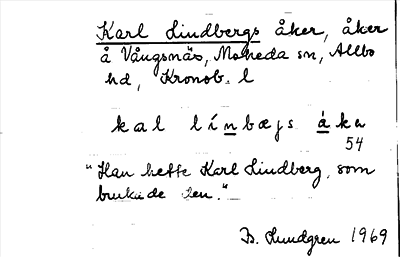 Karl Lindbergs åker, åker
å Vångsnäs, Moheda sn, Allbo
hd, Kronob. l
kal línbæjs ákeʀ
54
"Han hette Karl Lindberg, som
brukade den."
B. Lundgren 1969